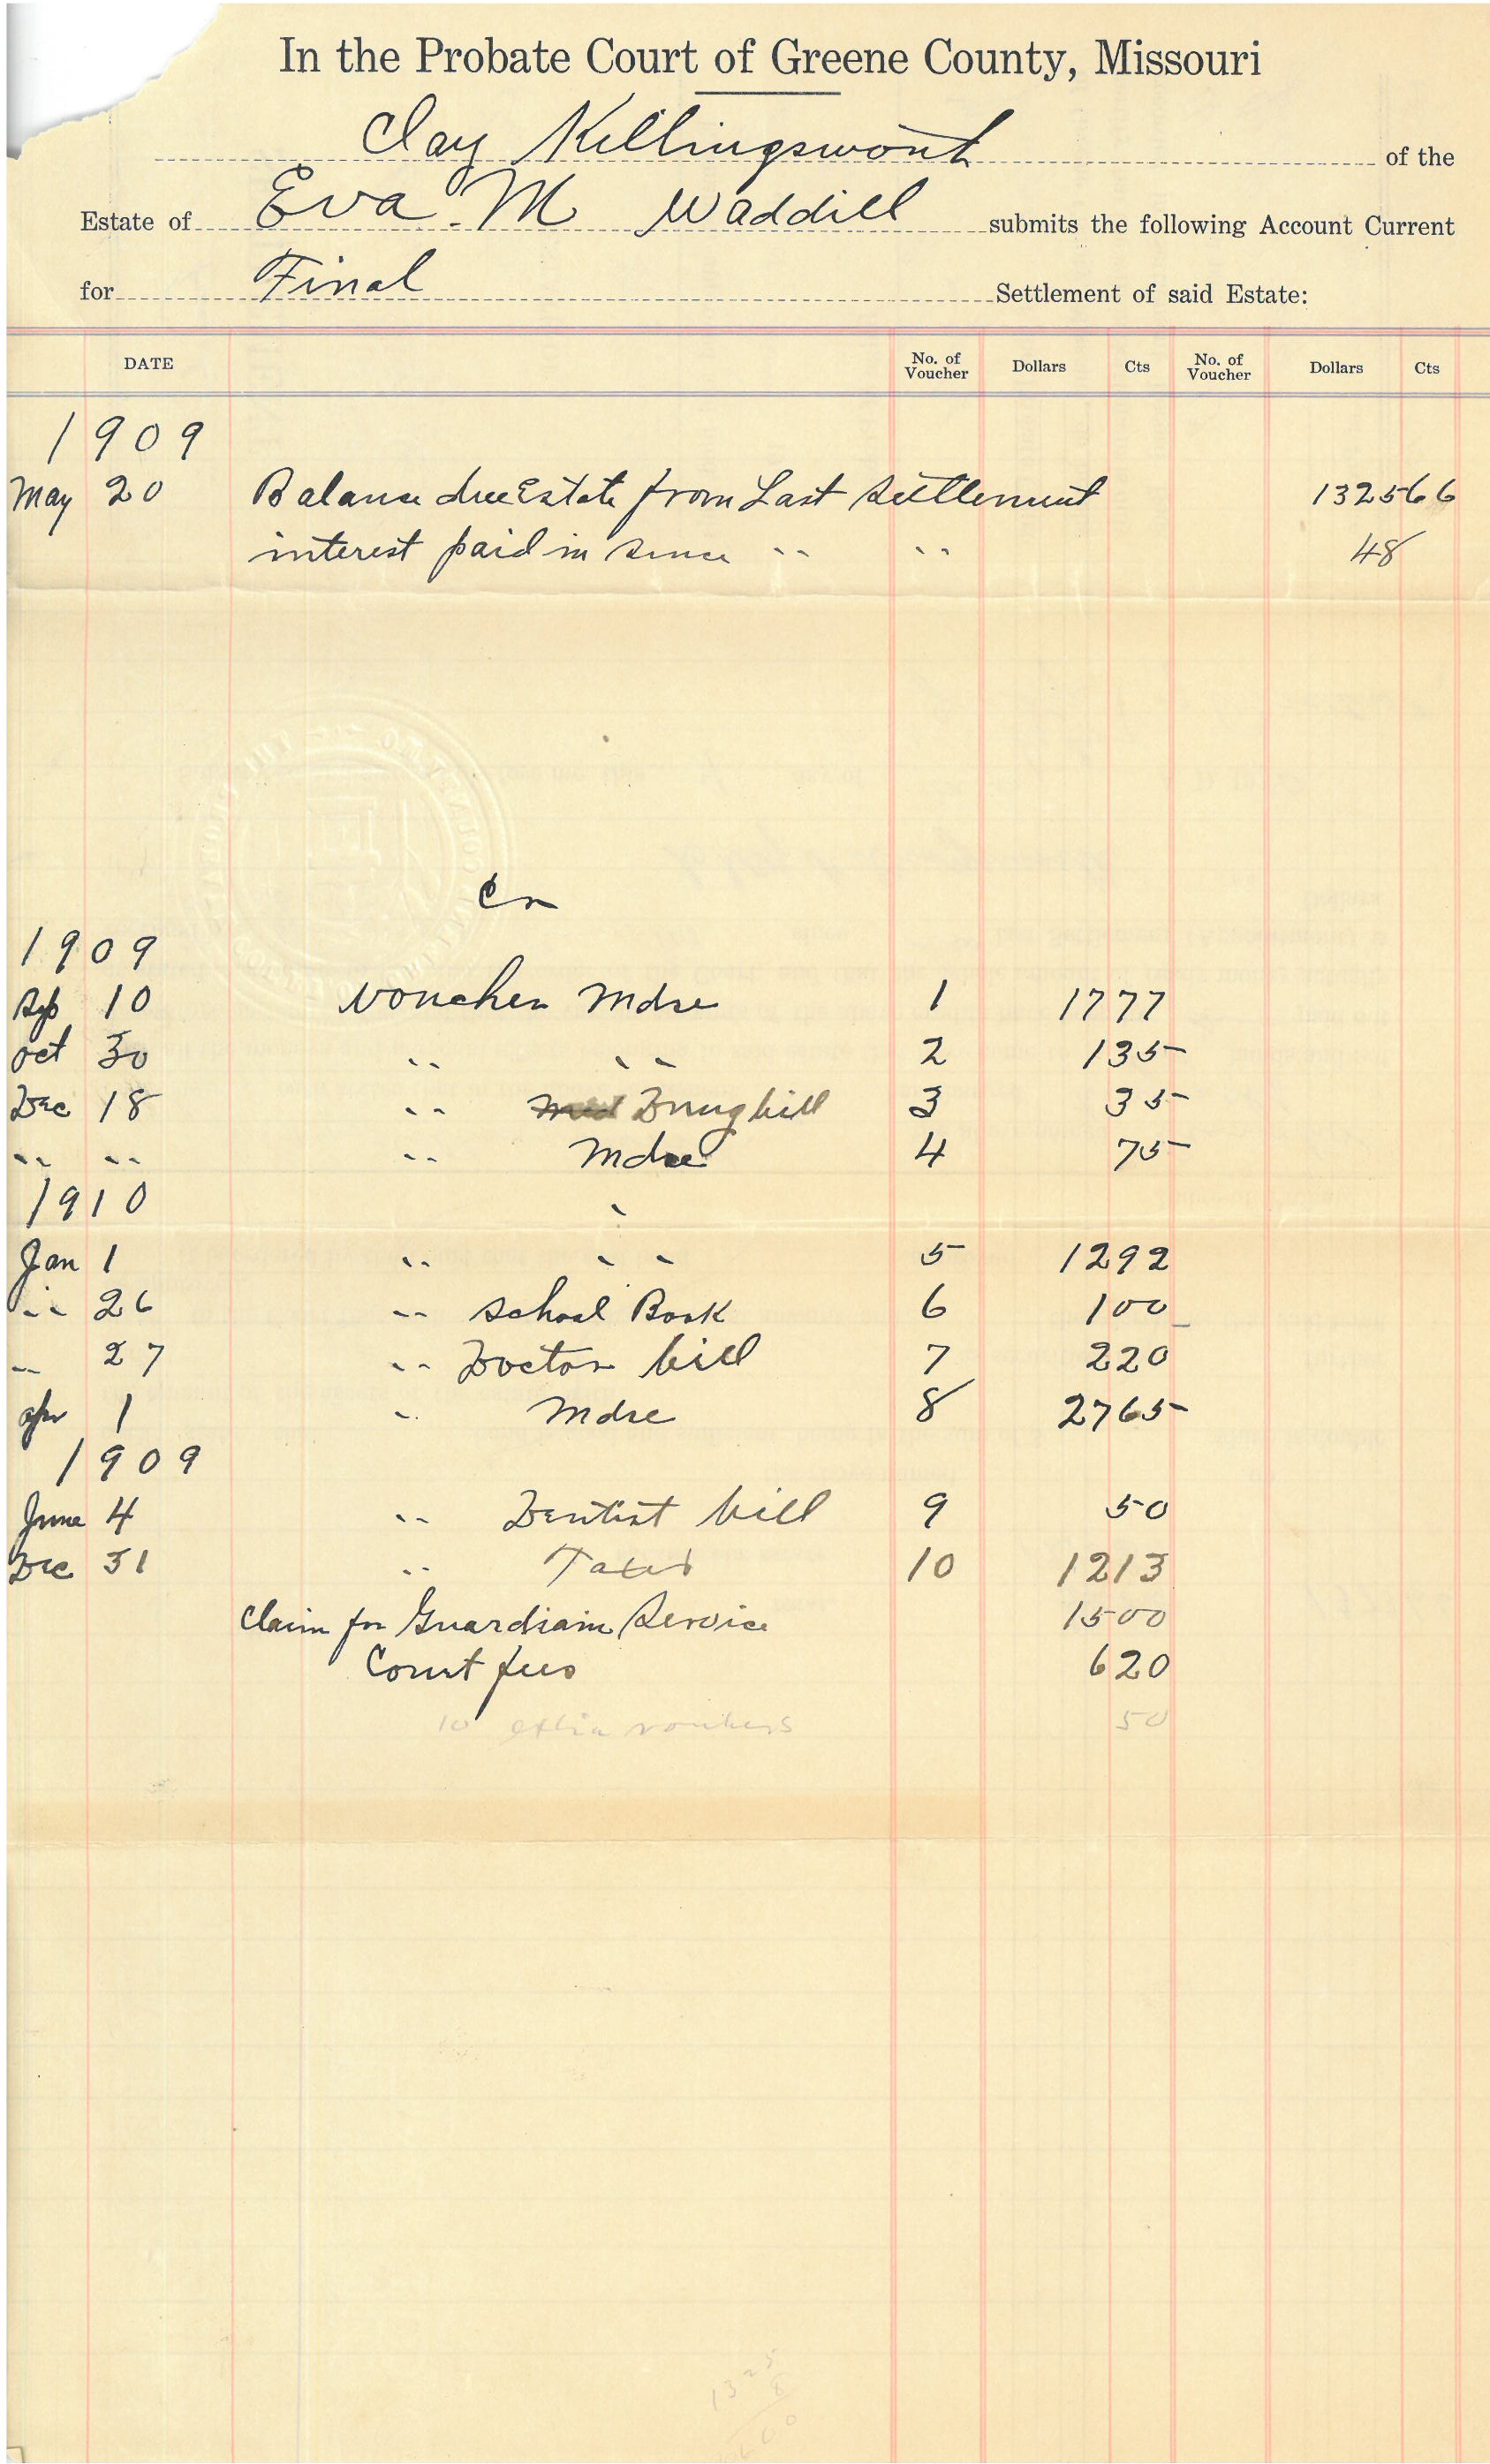 In the Probate Court of Greene County, Missouri
Clay Killingsworth of the
Estate of Eva M Waddill submits the following Account Current
for Final Settlement of said Estate:
DATE No. of Voucher Dollars Cts No. of Voucher Dollars Cts
1909
May 20 Balance due Estate from Last Settlement 1325 66
interest paid in since " " 48
Cr
1909
Sep 10 Voucher Mdse 1 17 77
Oct 30 " " 2 1 35
Dec 18 " Drug bill 3 35
" " " Mdse 4 75
1910
Jan 1 " " 5 12 92
" 26 " School Book 6 1 00
" 27 " Doctor bill 7 2 20
Apr 1 " Mdse 8 27 65
1909
June 4 " Dentist bill 9 50
Dec 31 " Taxes 10 12 13
Claim for Guardiain Service 15 00
Court fees 6 20
10 extra vouchers 50
1325
8